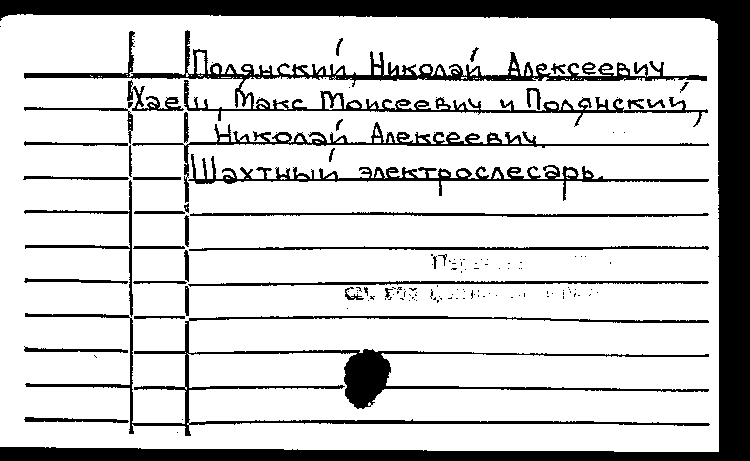 Полянский, Николай Алексеевич
Хаеш, Макс Моисеевич и Полянский,
Николай Алексеевич.
Шахтный электрослесарь.